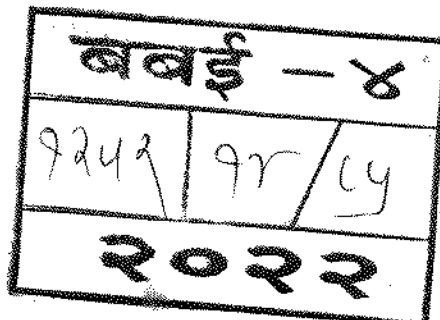 बबई - ४
१२५२ १८/८५
२०२२